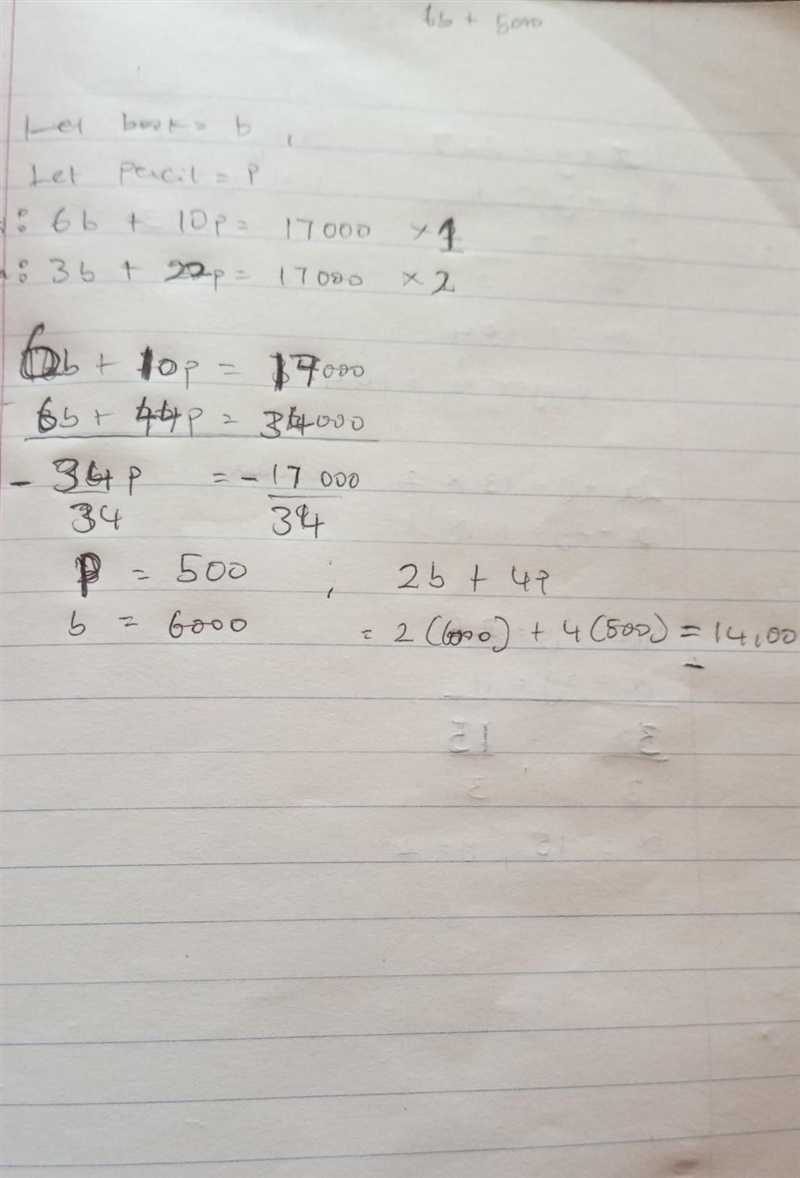 6b + 5000
Let book = b ,
Let Pencil = P
: 6b + 10p = 17000 × 1
: 3b + 22p = 17000 × 2
6b + 10p = 17000
- 6b + 44p = 34000
- 34p = - 17 000
34 34
P = 500 ; 2b + 4p
b = 6000 = 2 (6000) + 4 (500) = 14,00